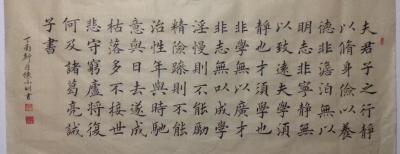 夫君子之行静
以脩身儉以養
德非澹泊無以
明志非寧静無
以致遠夫學須
静也才須學也
非學無以廣才
非志無以成學
淫慢則不能勵
精險躁則不能
治性年與時馳
意與日去遂成
枯落多不接世
悲守窮廬將復
何及諸葛亮誡
子書
丁酉